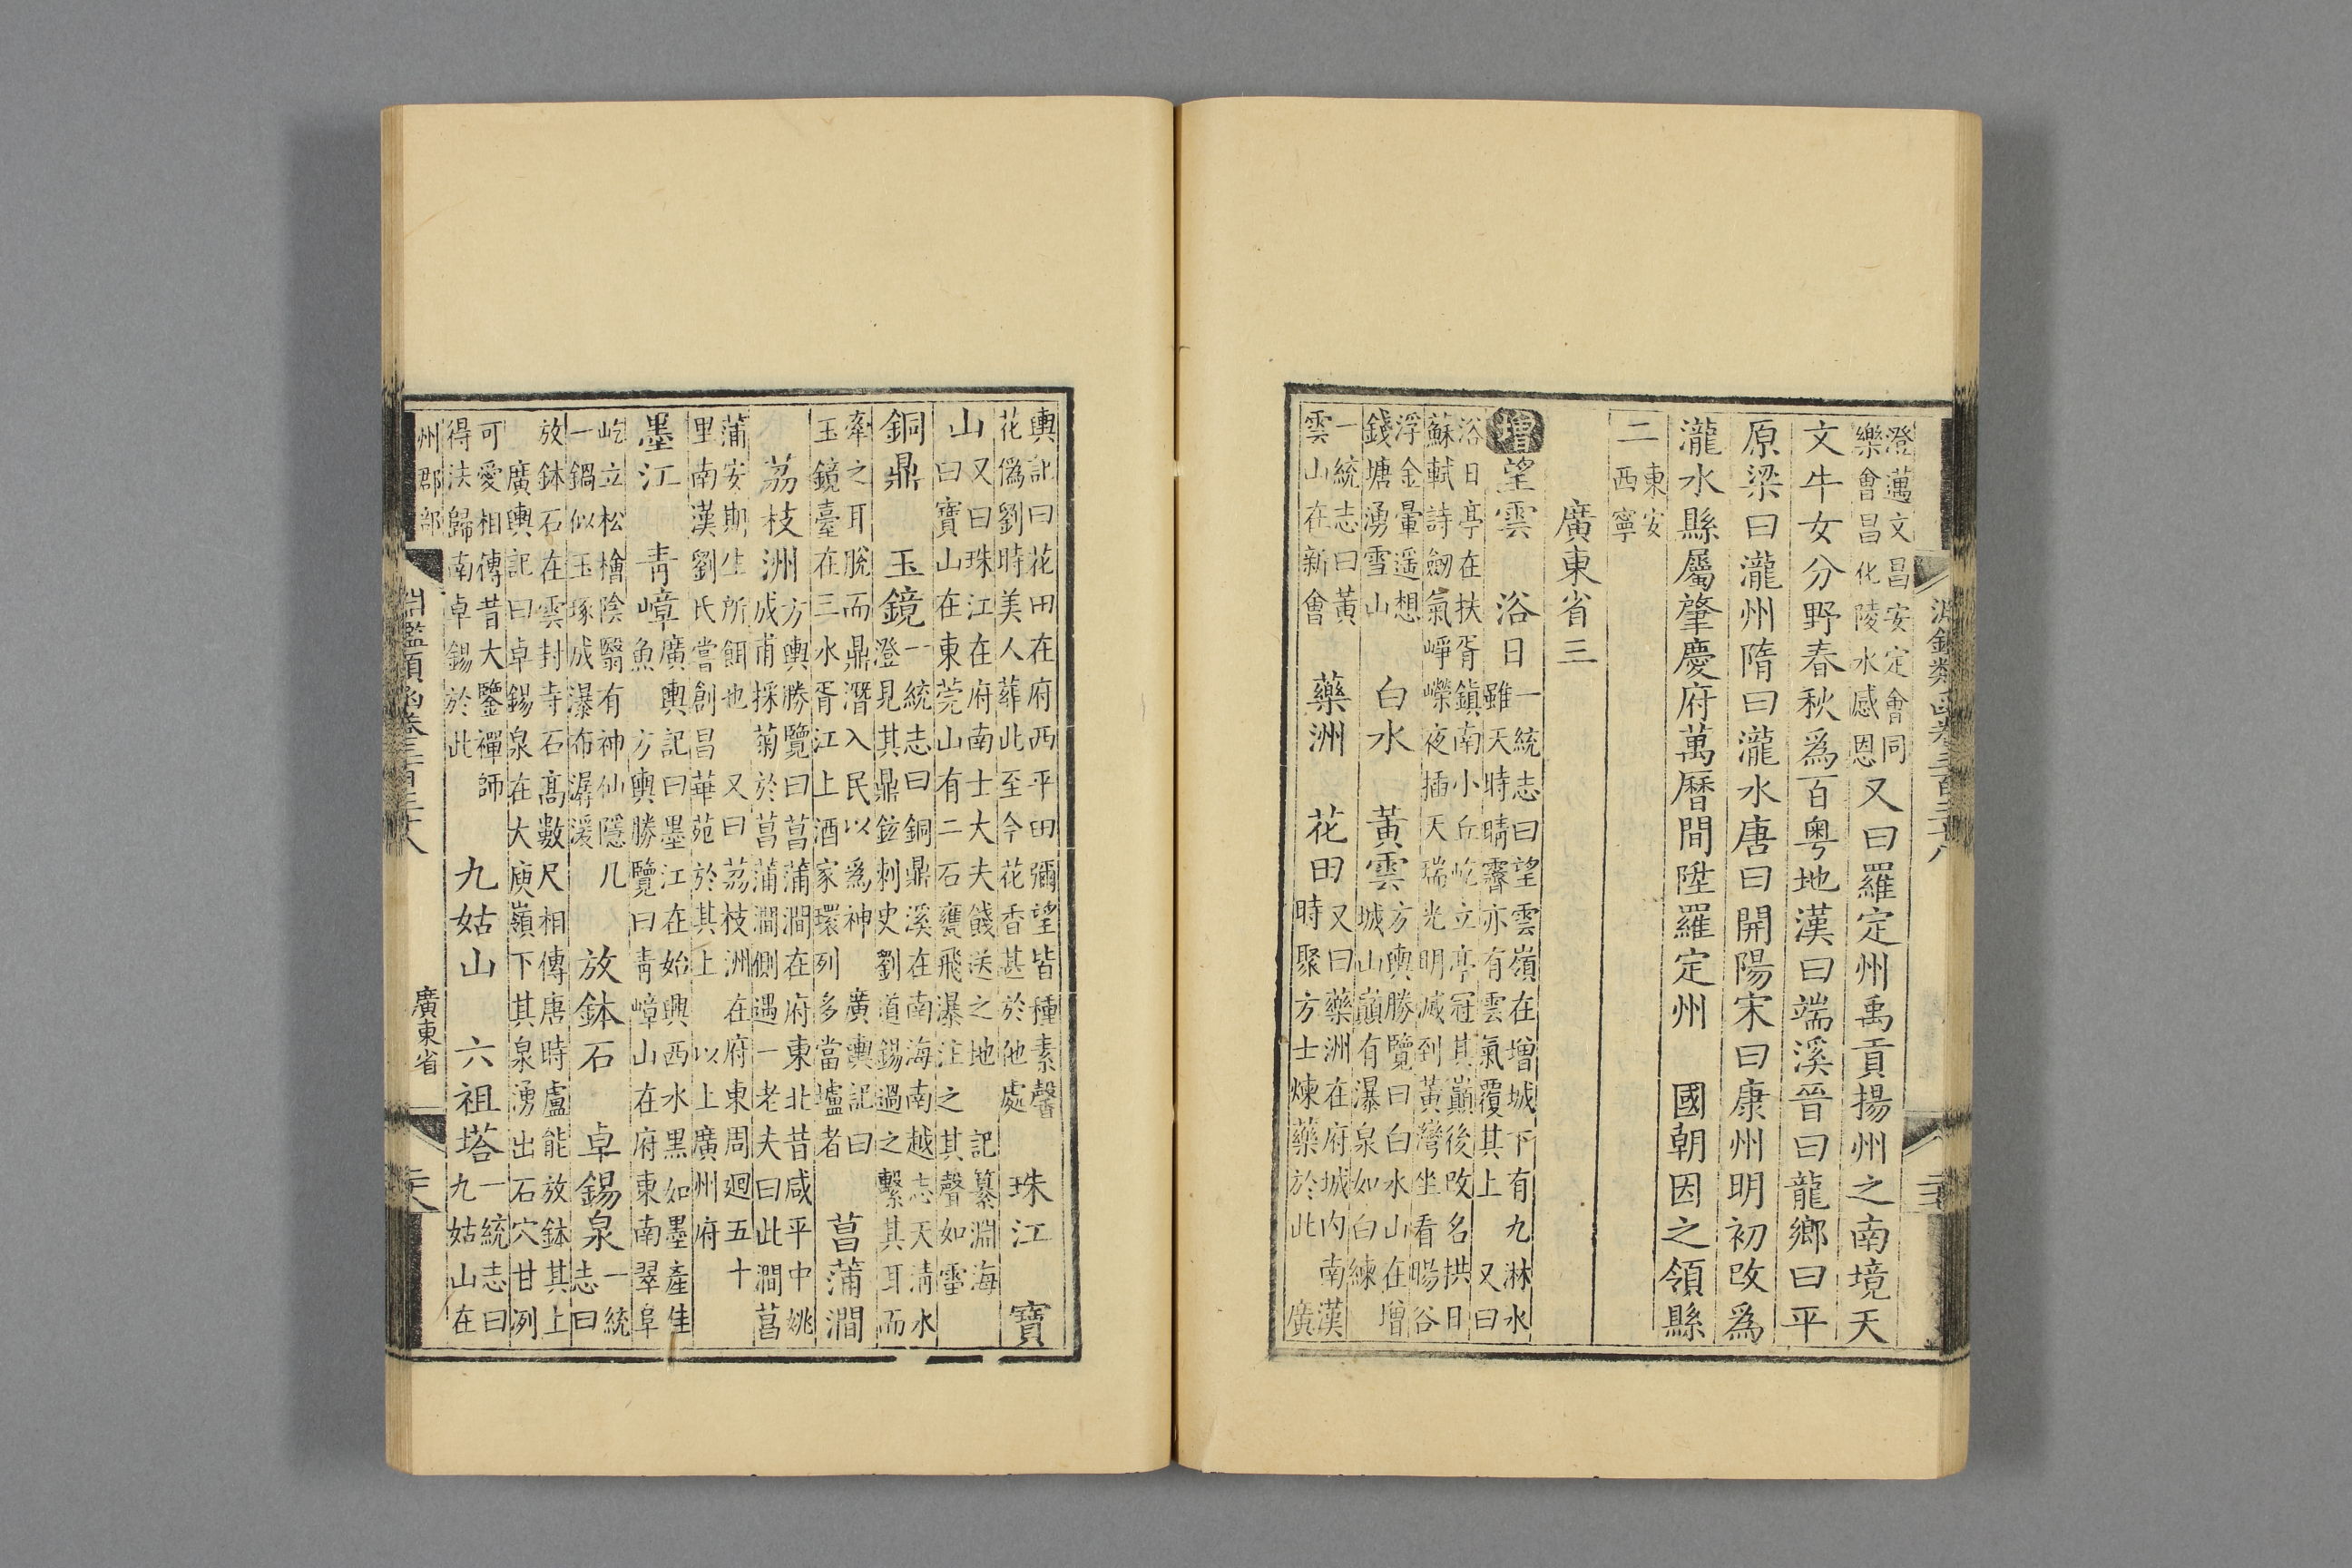 澄邁文昌安定會同
樂會昌化陵水感恩
又曰羅定州禹貢揚州之南境天
文牛女分野春秋爲百粤地漢曰端溪晉曰龍鄉曰平
原梁曰瀧州隋曰瀧水唐曰開陽宋曰康州明初改爲
瀧水縣屬肇慶府萬曆間陞羅定州　國朝因之領縣
二
東安
西寧
廣東省三
增望雲　浴日
一統志曰望雲嶺在增城下有九淋水
雖天時晴霽亦有雲氣覆其上　又曰
浴日亭在扶胥鎭南小丘屹立亭冠其巔後改名拱日
蘇軾詩劔氣崢嶸夜插天瑞光明滅到黃灣坐看暘谷
浮金暈遥想
錢塘湧雪山
白水　黃雲
方輿勝覽曰白水山在增
城山巔有瀑泉如白練
一統志曰黃
雲山在新會
藥洲　花田
又曰藥洲在府城内南漢
時聚方士煉藥於此　廣
輿記曰花田在府西平田彌望皆種素馨
花僞劉時美人葬此至今花香甚於他處
珠江　寶
山
又曰珠江在府南士大夫餞送之地　記纂淵海
曰寶山在東莞山有二石甕飛瀑注之其聲如雷
銅鼎　玉鏡
一統志曰銅鼎溪在南海南越志天淸水
澄見其鼎鉉刺史劉道錫過之繫其耳而
牽之耳脫而鼎潛入民以爲神　廣輿記曰
玉鏡臺在三水胥江上酒家環列多當壚者
菖蒲澗
荔枝洲
方輿勝覽曰菖蒲澗在府東北昔咸平中姚
成甫採菊於菖蒲澗側遇一老夫曰此澗菖
蒲安期生所餌也　又曰荔枝洲在府東周廻五十
里南漢劉氏嘗創昌華苑於其上　以上廣州府
墨江　靑嶂
廣輿記曰墨江在始興西水黑如墨產佳
魚　方輿勝覽曰靑嶂山在府東南翠阜
屹立松檜陰翳有神仙隱几
一鍋似玉琢成瀑布潺湲
放鉢石　卓錫泉
一統
志曰
放鉢石在雲封寺石髙數尺相傳唐時盧能放鉢其上
廣輿記曰卓錫泉在大庾嶺下其泉湧出石穴甘冽
可愛相傳昔大鑒禪師
得法歸南卓錫於此
九姑山　六祖塔
一統志曰
九姑山在
州郡部
淵鑑類函卷三百三十八
廣東省